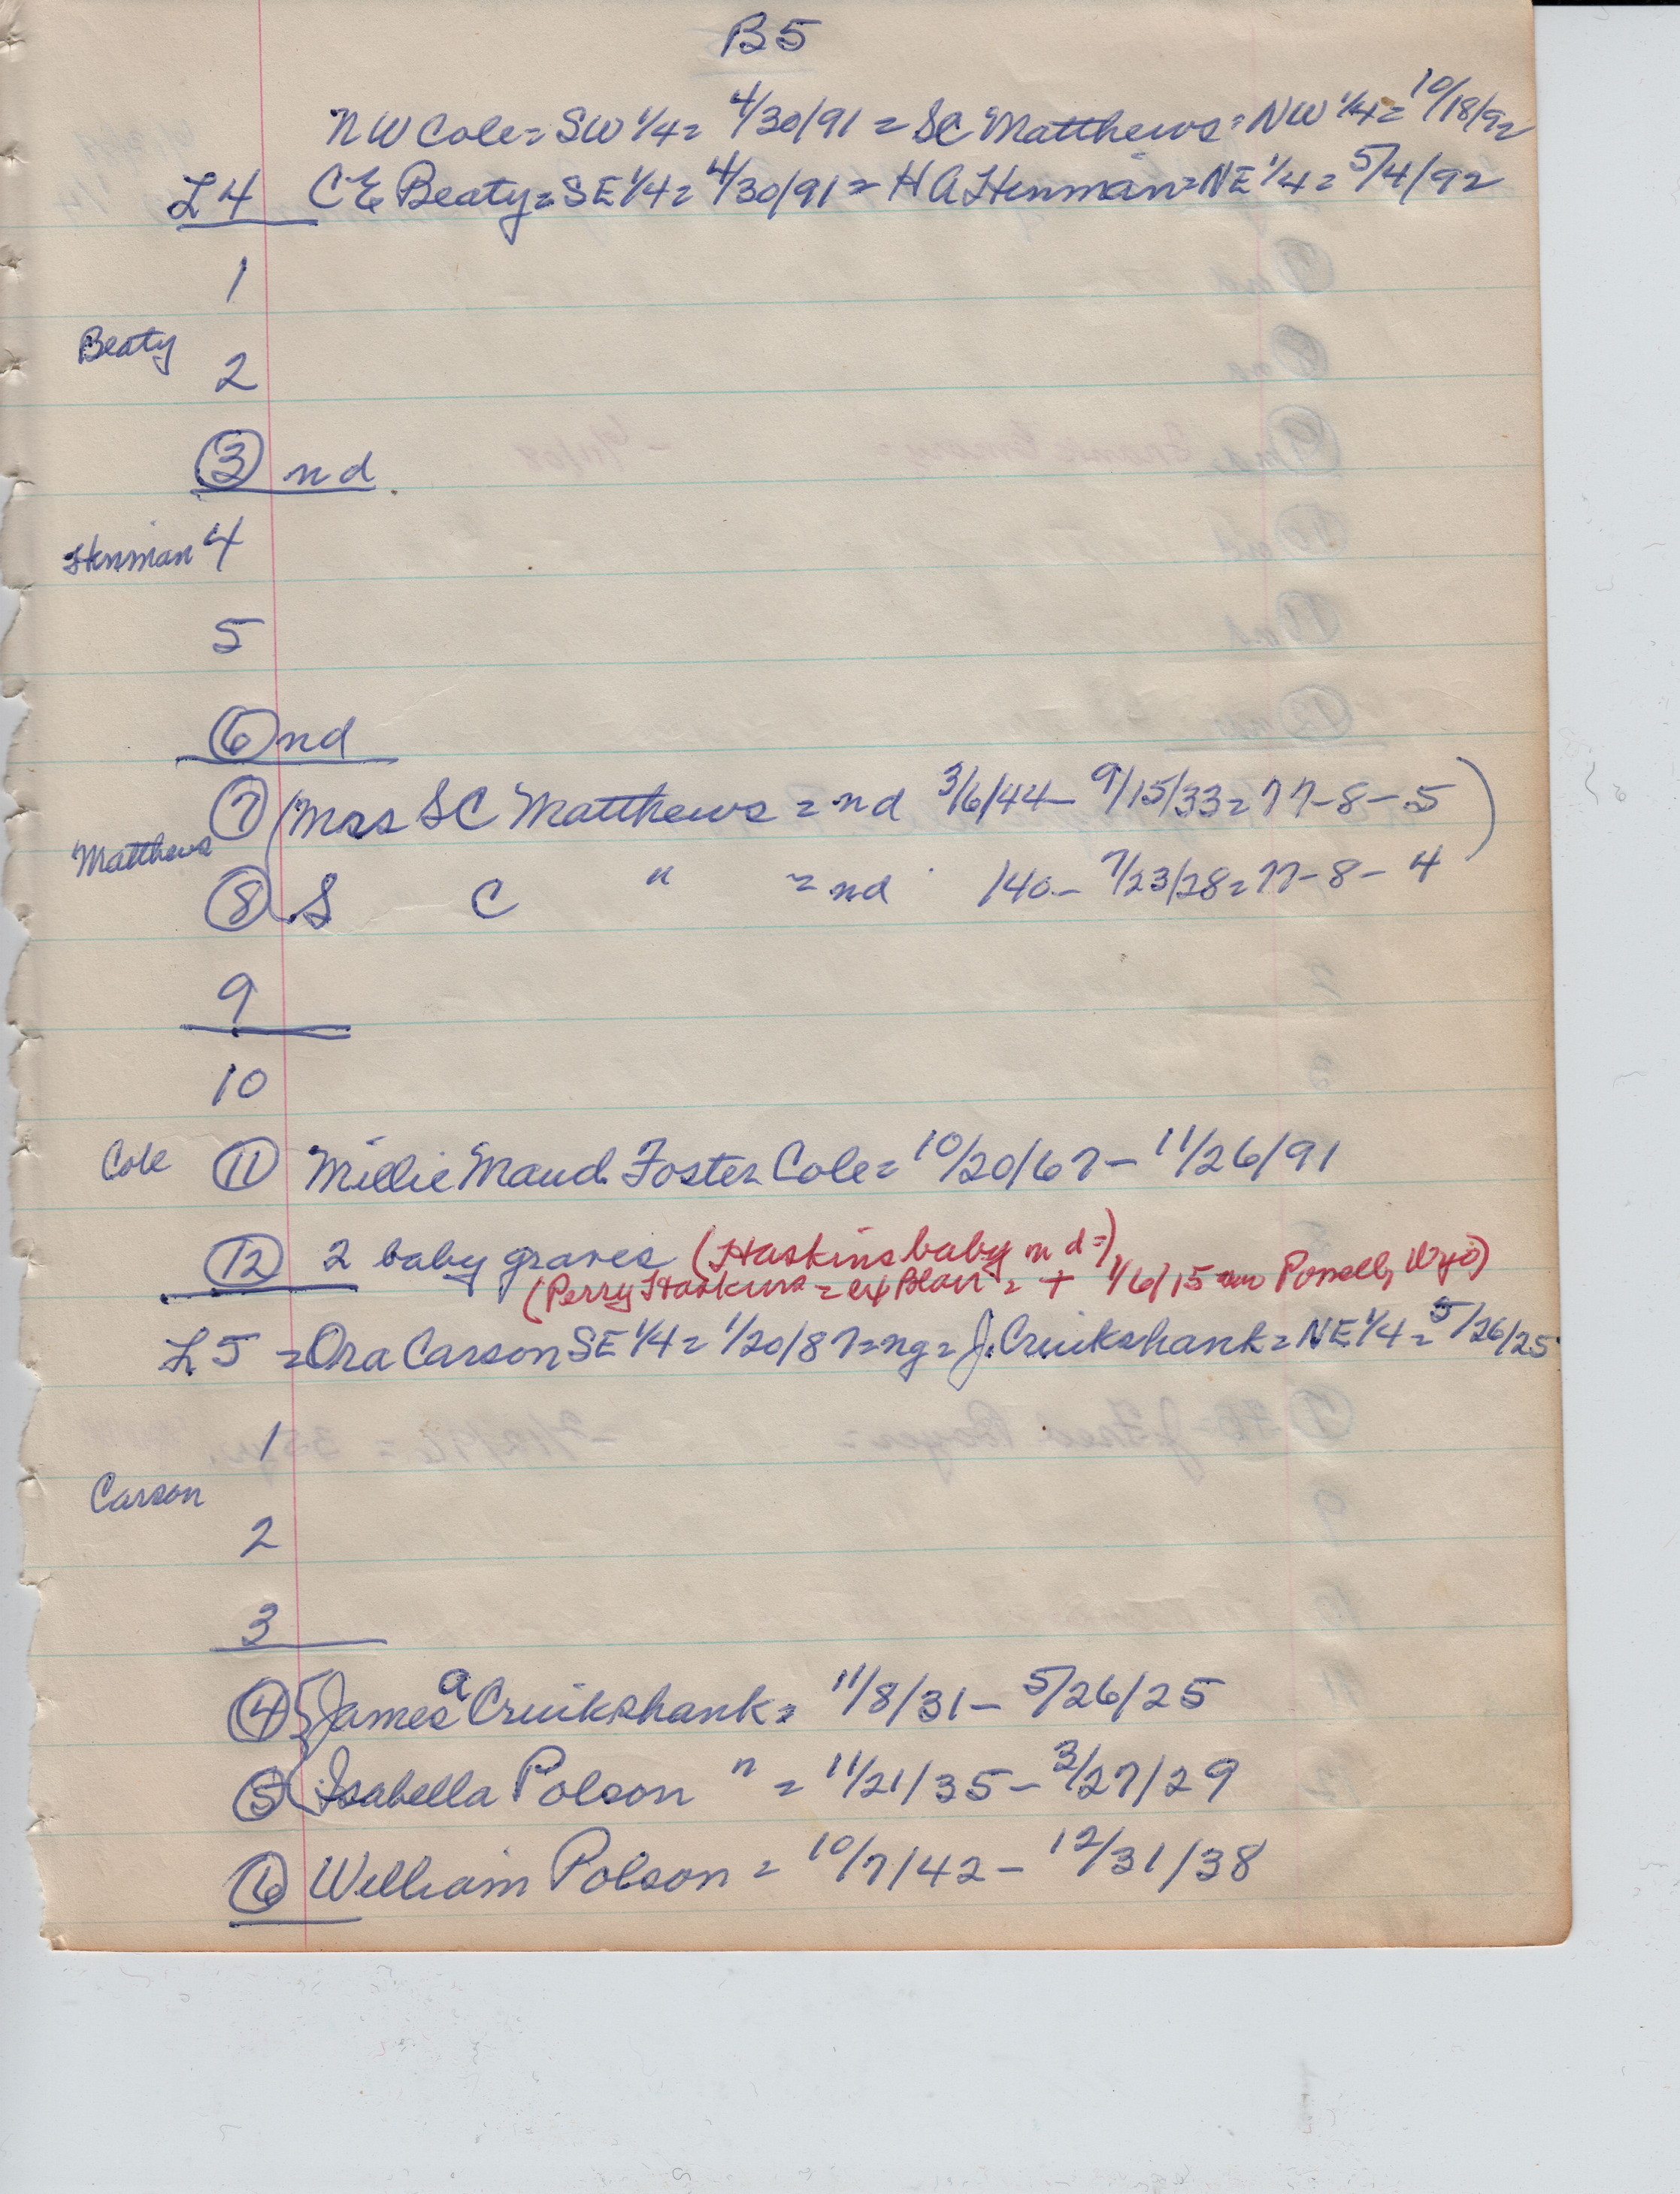 B5
N W Cole = SW 1/4 = 4/30/91 = SC Matthews = NW 1/4 = 10/18/92
L4 C E Beaty = SE 1/4 = 4/30/91 = H A Henman = NE 1/4 = 5/4/92
1
Beaty
2
③ nd.
Henman 4
5
⑥ nd
⑦ (Mrs S C Matthews = nd 3/6/44 - 9/15/33 = 77-8-5)
Matthews
⑧ S C " = nd 140 - 7/23/28 = 77-8-4
9
10
Cole ⑪ Millie Maud Foster Cole = 10/20/67 - 11/26/91
⑫ 2 baby graves (Haskins baby n d =)
(Perry Haskins = ex Blair = + 1/6/15 Powell, Wyo)
L5 = Ora Carson SE 1/4 = 1/20/87 = ng = J. Cruikshank = NE 1/4 = 5/26/25
1
Carson
2
3
④ {James A Cruikshank = 11/8/31 - 5/26/25
⑤ {Isabella Polson " = 11/21/35 - 3/27/29
⑥ William Polson = 10/7/42 - 12/31/38